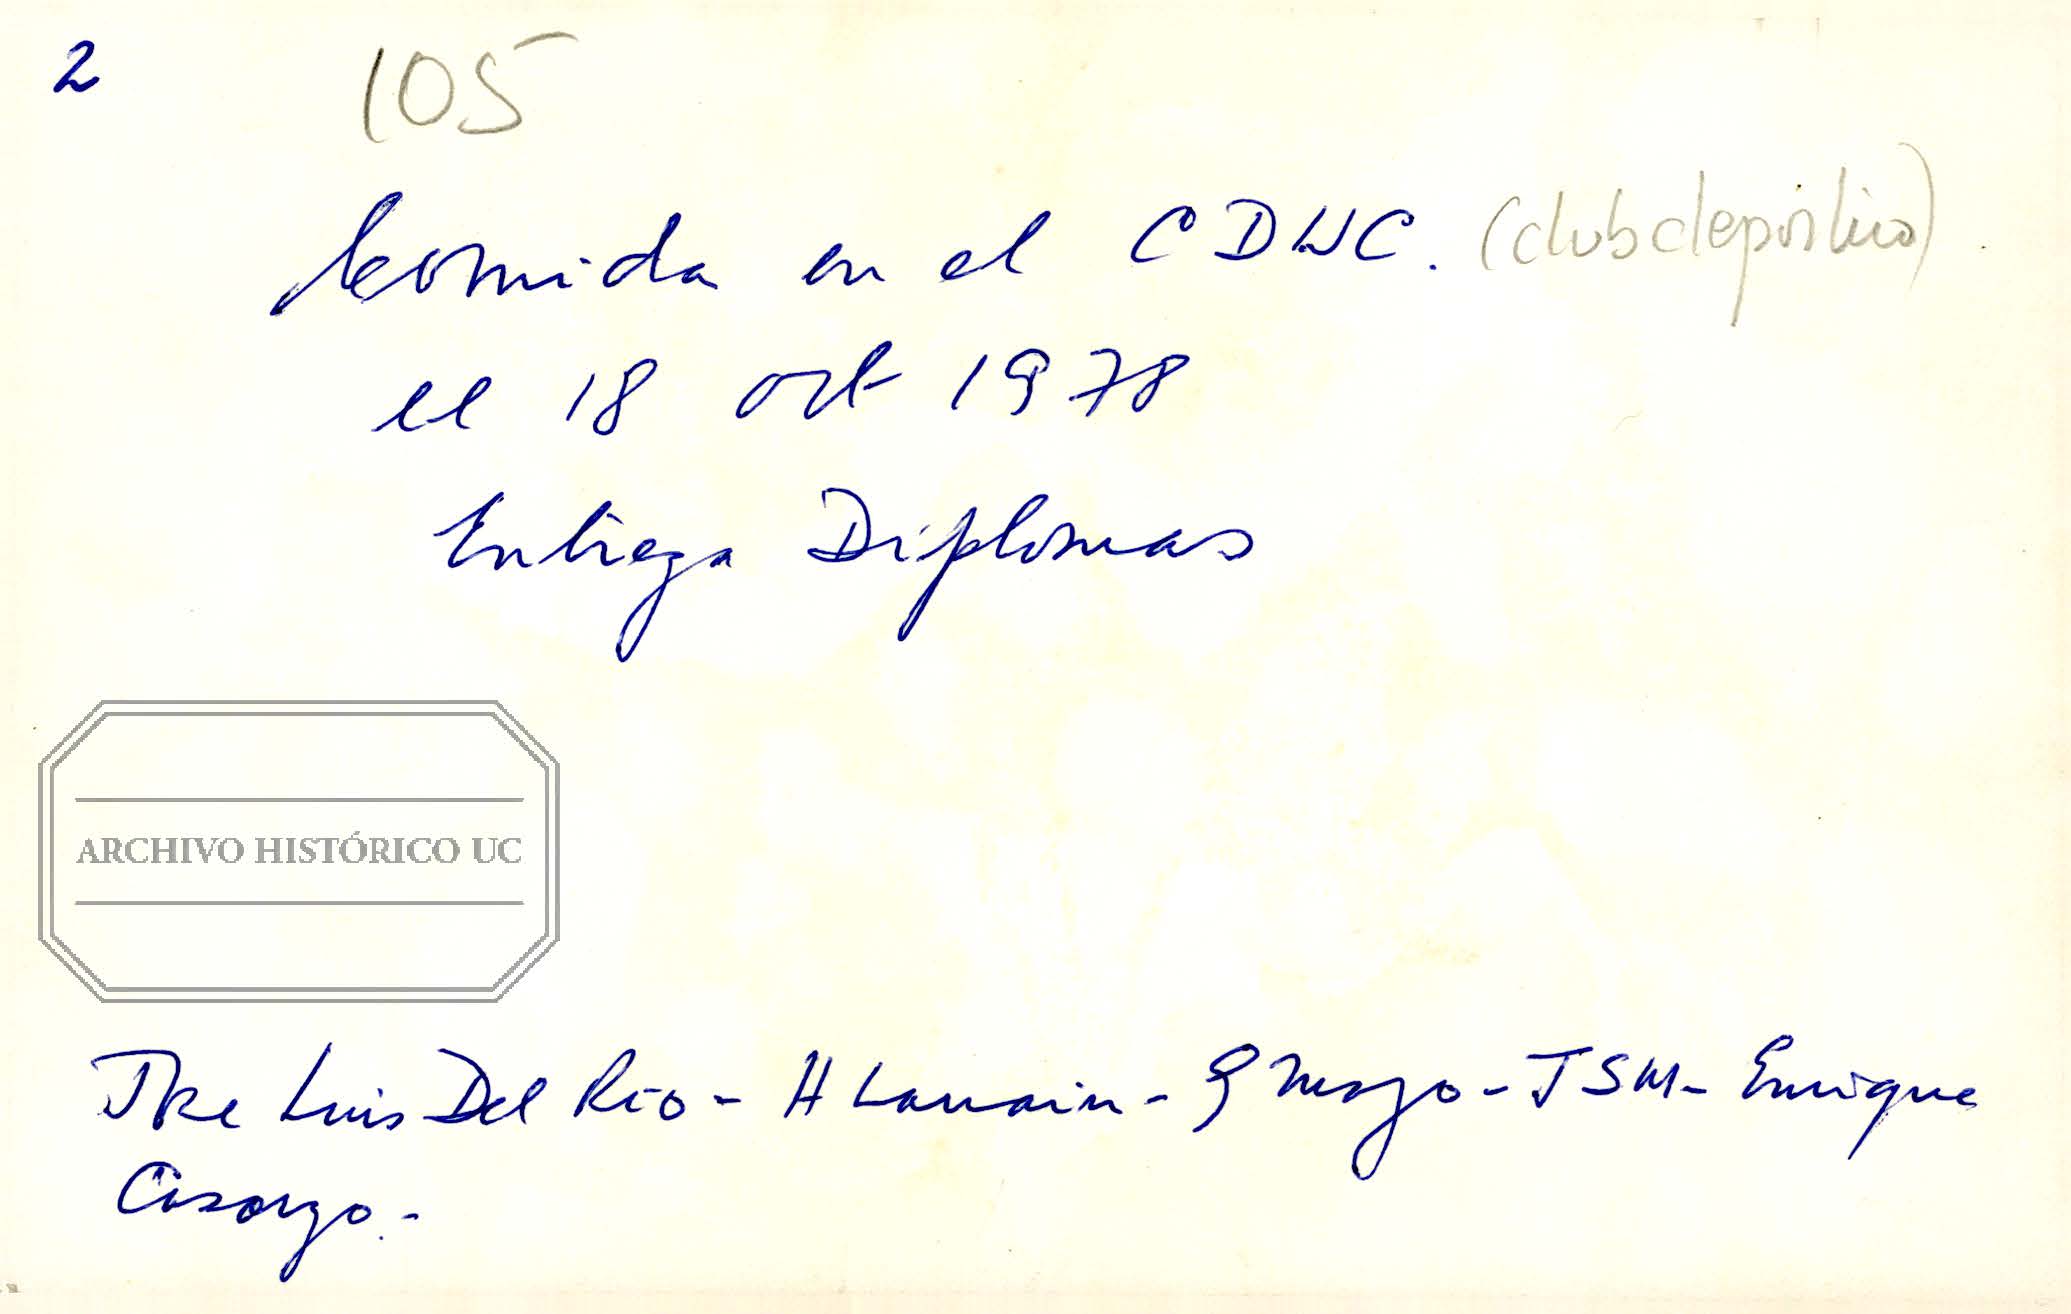 2 105
Comida en el CDUC. (club deportivo)
el 18 oct 1978
Entrega Diplomas
ARCHIVO HISTÓRICO UC
Luis Del Río - H Larraín - G Mayo - JSM - Enrique